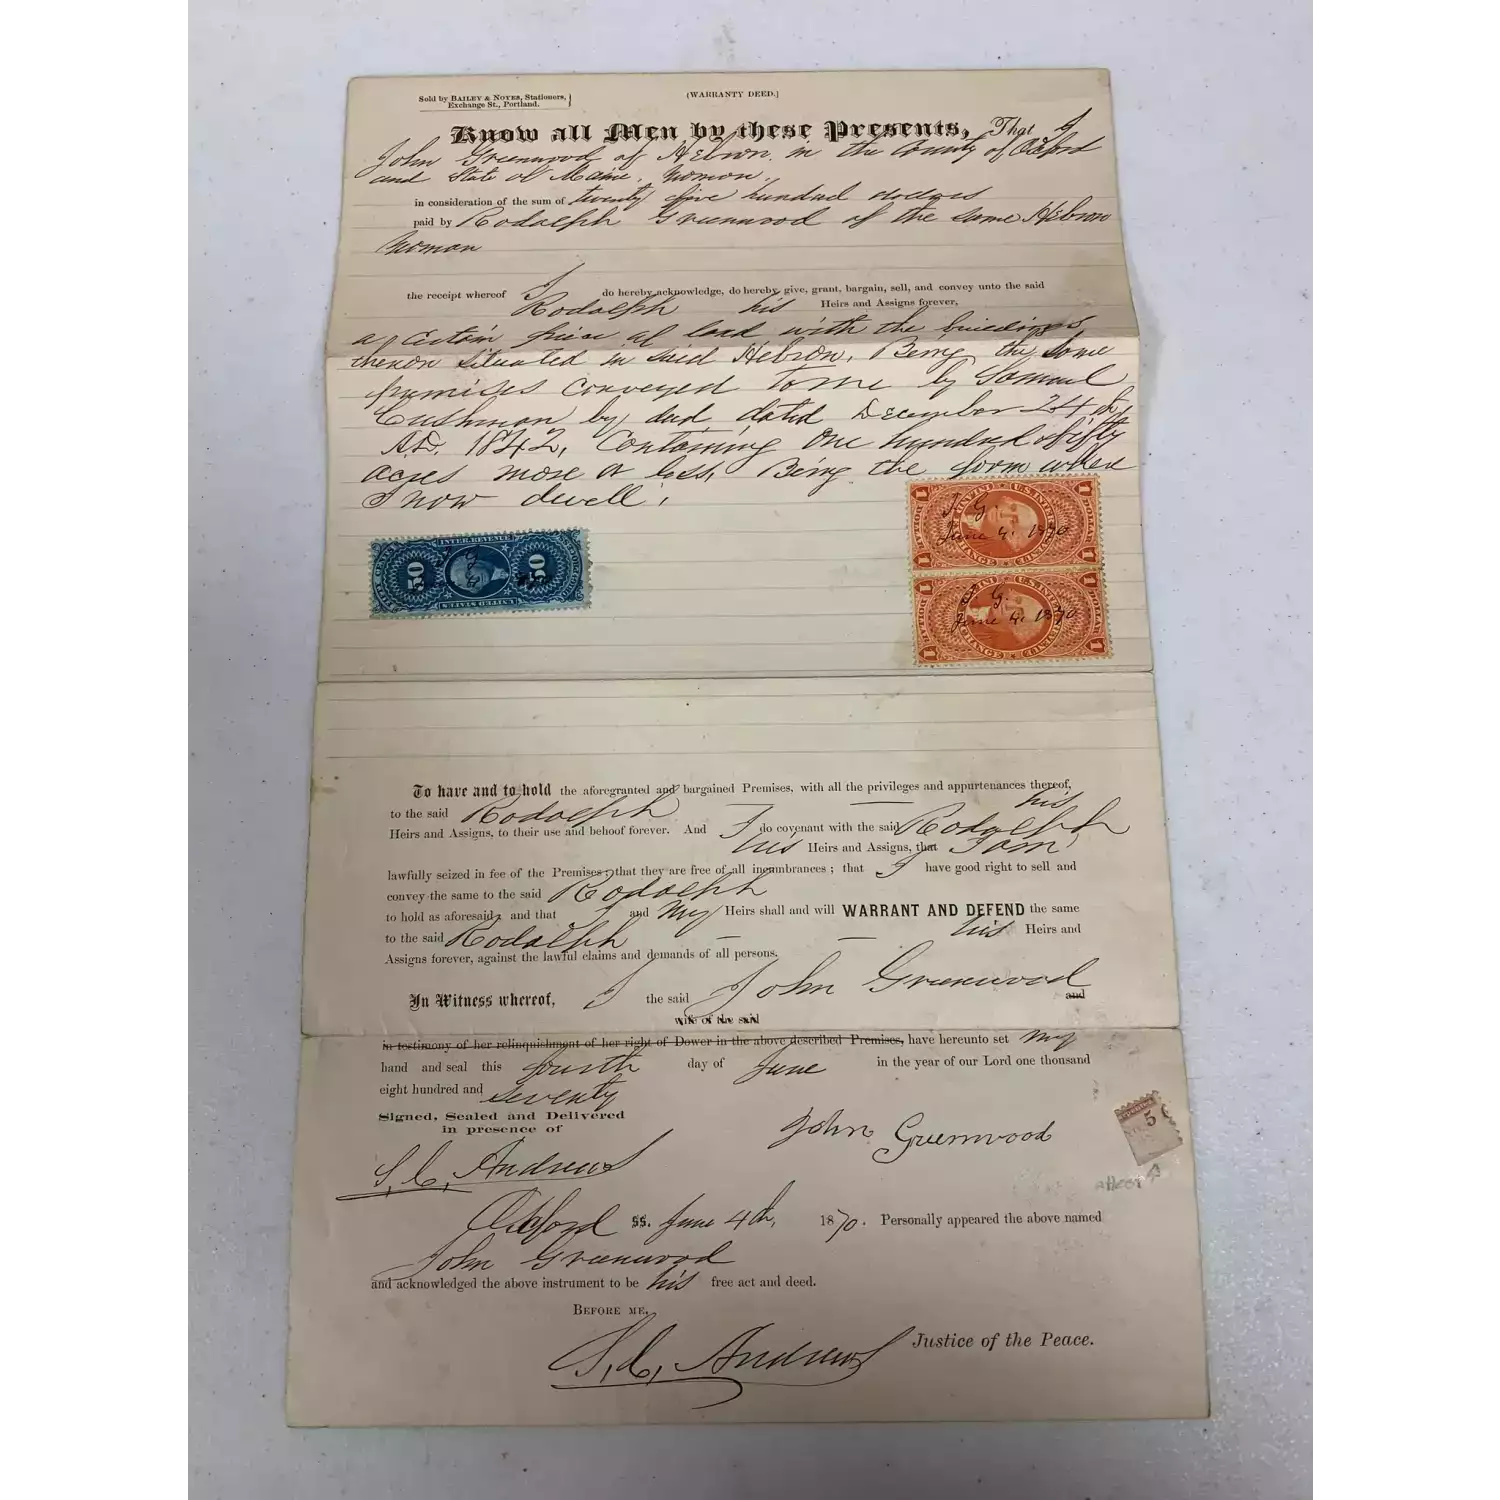 Sold by BAILEY & NOYES, Stationers,
Exchange St., Portland.
(WARRANTY DEED.)
Know all Men by these Presents, That I
John Greenwood of Hebron in the County of Oxford
and State of Maine, Yeoman,
in consideration of the sum of twenty five hundred dollars
paid by Rodolph Greenwood of the same Hebron
Yeoman
the receipt whereof I do hereby acknowledge, do hereby give, grant, bargain, sell, and convey unto the said
Rodolph his Heirs and Assigns forever,
a Certain piece of land with the buildings
thereon situated in said Hebron, Being the same
premises conveyed to me by Samuel
Cushman by deed dated December 24th
A.D. 1842, Containing One hundred & fifty
acres more or less, Being the farm where
I now dwell.
50 INTER. REVENUE 50
UNITED STATES
1 U.S. INTER. 1
DOLLAR
J. G.
June 4. 1870
EXCHANGE
1 U.S. INTER. 1
DOLLAR
G.
June 4. 1870
EXCHANGE
To have and to hold the aforegranted and bargained Premises, with all the privileges and appurtenances thereof,
to the said Rodolph his
Heirs and Assigns, to their use and behoof forever. And I do covenant with the said Rodolph
his Heirs and Assigns, that I am
lawfully seized in fee of the Premises; that they are free of all incumbrances; that I have good right to sell and
convey the same to the said Rodolph
to hold as aforesaid; and that I and my Heirs shall and will WARRANT AND DEFEND the same
to the said Rodolph his Heirs and
Assigns forever, against the lawful claims and demands of all persons.
In Witness whereof, I the said John Greenwood and
wife of the said
in testimony of her relinquishment of her right of Dower in the above described Premises, have hereunto set my
hand and seal this fourth day of June in the year of our Lord one thousand
eight hundred and seventy
Signed, Sealed and Delivered
in presence of
John Greenwood
5 c
S. C. Andrews
Oxford ss. June 4th, 1870. Personally appeared the above named
John Greenwood
and acknowledged the above instrument to be his free act and deed.
BEFORE ME,
S. C. Andrews Justice of the Peace.